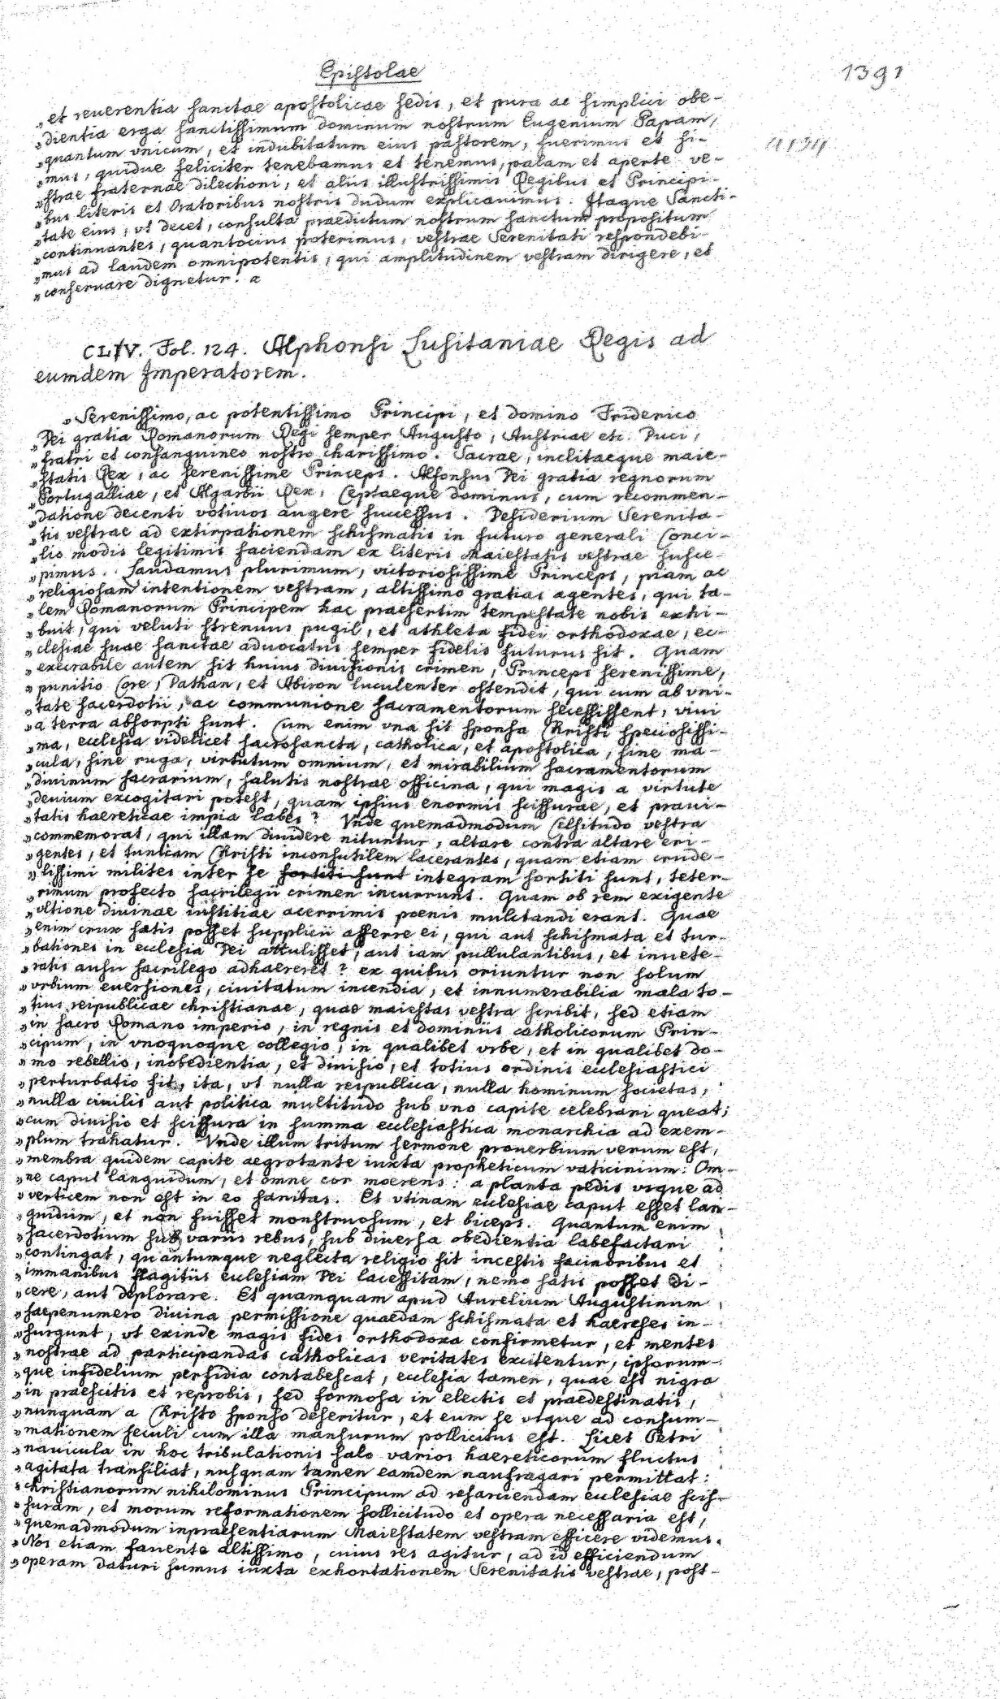 Epistolae
1391
„et reuerentia sanctae apostolicae sedis, et pura ac simplici obe-
„dientia erga sanctissimum dominum nostrum Eugenium Papam,
„quantum vnicum, et indubitatum eius pastorem, fuerimus et si-
„mus, quidue feliciter tenebamus et tenemus, palam et aperte ve-
„strae fraternae dilectioni, et aliis illustrissimis Regibus et Principi-
„bus literis et Oratoribus nostris dudum explicauimus. Itaque Sancti-
„tate eius, vt decet, consulta praedictum nostrum sanctum propositum
„continuantes, quantocius poterimus, vestrae Serenitati respondebi-
„mus ad laudem omnipotentis, qui amplitudinem vestram dirigere, et
„conseruare dignetur. a
CLIV. Fol. 124. Alphonsi Lusitaniae Regis ad
eumdem Imperatorem.
„Serenissimo, ac potentissimo Principi, et domino Friderico
„Dei gratia Romanorum Regi semper Augusto, Austriae etc. Duci,
„fratri et consanguineo nostro charissimo. Sacrae, inclitaeque maie-
„statis Rex, ac serenissime Princeps. Alfonsus Dei gratia regnorum
„Portugalliae, et Algarbii Rex, Ceptaeque dominus, cum recommen-
„datione decenti votiuos augere successus. Desiderium Serenita-
„tis vestrae ad extirpationem schismatis in futuro generali Conci-
„lio modis legitimis faciendam ex literis Maiestatis vestrae susce-
„pimus. Laudamus plurimum, victoriosissime Princeps, piam ac
„religiosam intentionem vestram, altissimo gratias agentes, qui ta-
„lem Romanorum Principem hac praesertim tempestate nobis exhi-
„buit, qui veluti strenuus pugil, et athleta fidei orthodoxae, ec-
„clesiae suae sanctae aduocatus semper fidelis futurus sit. Quam
„execrabile autem sit huius diuisionis crimen, Princeps serenissime,
„punitio Core, Dathan, et Abiron luculenter ostendit, qui cum ab vni-
„tate sacerdotii, ac communione sacramentorum secessissent, viui
„a terra absorpti sunt. Cum enim vna sit sponsa Christi speciosissi-
„ma, ecclesia videlicet sacrosancta, catholica, et apostolica, sine ma-
„cula, sine ruga, virtutum omnium, et mirabilium sacramentorum
„diuinum sacrarium, salutis nostrae officina, qui magis a virtute
„deuium excogitari potest, quam ipsius enormis scissurae, et praui-
„tatis haereticae impia labes? Vnde quemadmodum Celsitudo vestra
„commemorat, qui illam diuidere nituntur, altare contra altare eri-
„gentes, et tunicam Christi inconsutilem lacerantes, quam etiam crude-
„lissimi milites inter se sortiti sunt integram sortiti sunt, teter-
„rimum profecto sacrilegii crimen incurrunt. Quam ob rem exigente
„vltione diuinae iustitiae acerrimis poenis mulctandi erant. Quae
„enim crux satis posset supplicii afferre ei, qui aut schismata et tur-
„bationes in ecclesia Dei attulisset, aut iam pullulantibus, et inuete-
„ratis ausu sacrilego adhaereret? ex quibus oriuntur non solum
„vrbium euersiones, ciuitatum incendia, et innumerabilia mala to-
„tius reipublicae christianae, quae maiestas vestra scribit, sed etiam
„in sacro Romano imperio, in regnis et dominiis catholicorum Prin-
„cipum, in vnoquoque collegio, in qualibet vrbe, et in qualibet do-
„mo rebellio, inobedientia, et diuisio, et totius ordinis ecclesiastici
„perturbatio sit, ita, vt nulla respublica, nulla hominum societas,
„nulla ciuilis aut politica multitudo sub vno capite celebrari queat;
„cum diuisio et scissura in summa ecclesiastica monarchia ad exem-
„plum trahatur. Vnde illum tritum sermone prouerbium verum est,
„membra quidem capite aegrotante iuxta propheticum vaticinium: Om-
„ne caput languidum, et omne cor moerens: a planta pedis vsque ad
„verticem non est in eo sanitas. Et vtinam ecclesiae caput esset lan-
„guidum, et non fuisset monstruosum, et biceps. Quantum enim
„sacerdotium sub variis rebus, sub diuersa obedientia labefactari
„contingat, quantumque neglecta religio sit incestis facinoribus et
„immanibus flagitiis ecclesiam Dei lacessitam, nemo satis posset di-
„cere, aut deplorare. Et quamquam apud Aurelium Augustinum
„saepenumero diuina permissione quaedam schismata et haereses in-
„surgunt, vt exinde magis fides orthodoxa confirmetur, et mentes
„nostrae ad participandas catholicas veritates excitentur, ipsorum-
„que infidelium perfidia contabescat, ecclesia tamen, quae est nigra
„in praescitis et reprobis, sed formosa in electis et praedestinatis,
„nunquam a Christo sponso deseritur, et eum se vsque ad consum-
„mationem seculi cum illa mansurum pollicitus est. Licet Petri
„nauicula in hoc tribulationis salo varios haereticorum fluctus
„agitata transiliat, nusquam tamen eamdem naufragari permittat:
„christianorum nihilominus Principum ad resarciendam ecclesiae scis-
„suram, et morum reformationem sollicitudo et opera necessaria est,
„quemadmodum inpraesentiarum Maiestatem vestram efficere videmus.
„Nos etiam fauente altissimo, cuius res agitur, ad id efficiendum
„operam daturi sumus iuxta exhortationem Serenitatis vestrae, post-